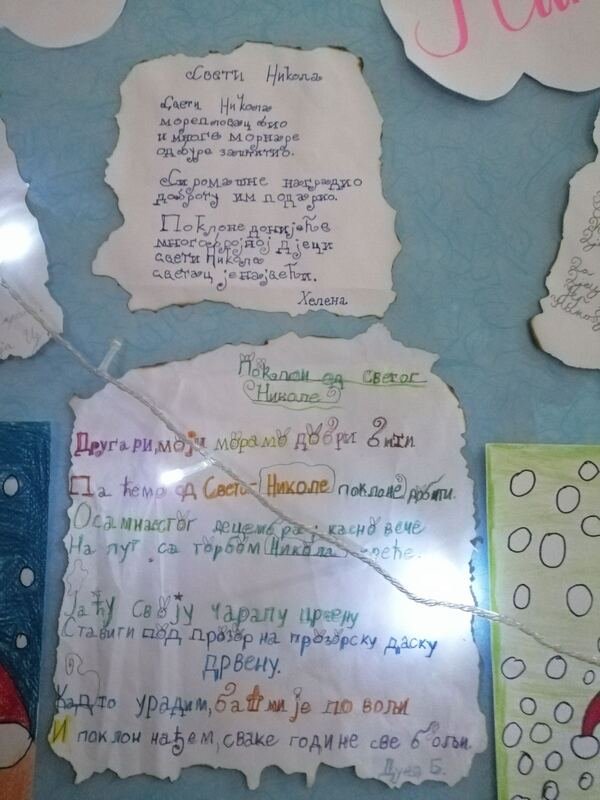 Свети Никола
Свети Никола
морепловац био
и многе морнаре
од буре заштитио.
Сиромашне наградио
доброту им подарио.
Поклоне донијеће
многобројној дјеци
свети Никола
светац је највећи.
Хелена
Поклон од Светог
Николе
Другари, моји морамо добри бити
Па ћемо од Свети- Николе поклоне добити.
Осамнаестог децембра, касно вече
На пут са торбом Никола креће.
Ја ћу своју чарапу црвену
Ставити под прозор на прозорску даску
дрвену.
Кад то урадим, баш ми је по вољи
И поклон нађем, сваке године све бољи.
Б.